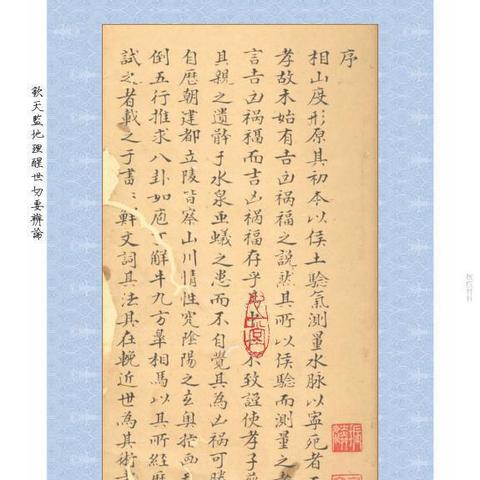 序
相山度形原其初本以侯土驗氣測量水脉以寧宛者
孝故未始有吉凶禍福之說然其所以侯驗而測量之者
言吉凶禍福而吉凶禍福存乎不致誣使孝子
其親之遺骸于水泉虫蟻之患而不自覺其為凶禍可勝
自歷朝建都立陵皆察山川情性究陰陽之玄奧
倒五行推求八卦如庖丁解牛九方臯相馬以其所經歷
試之者載之于書文詞其法具在輓近世為其術
欽天監地理醒世切要辨論